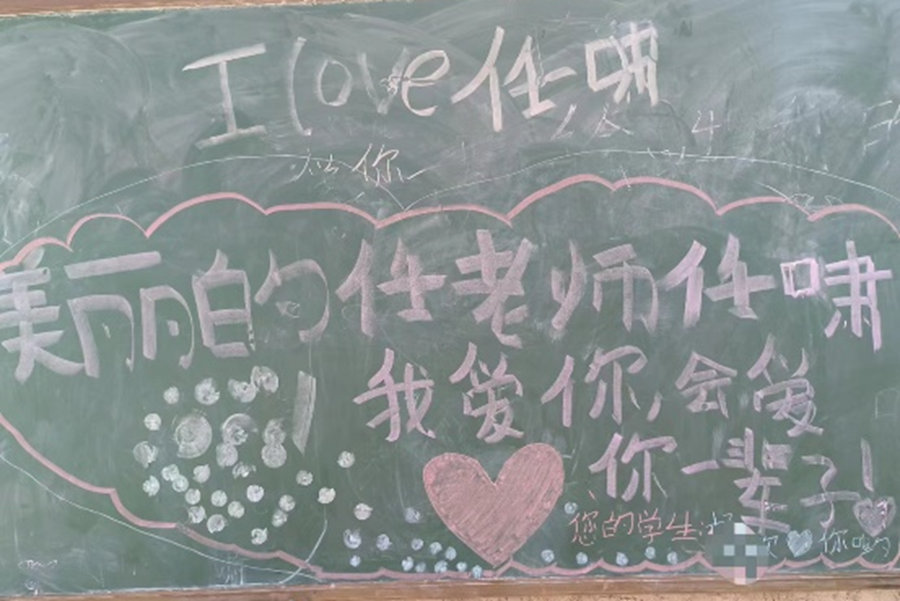 I love 任啸
你
美丽的任老师任啸
我爱你,会爱
你一辈子!
您的学生
你